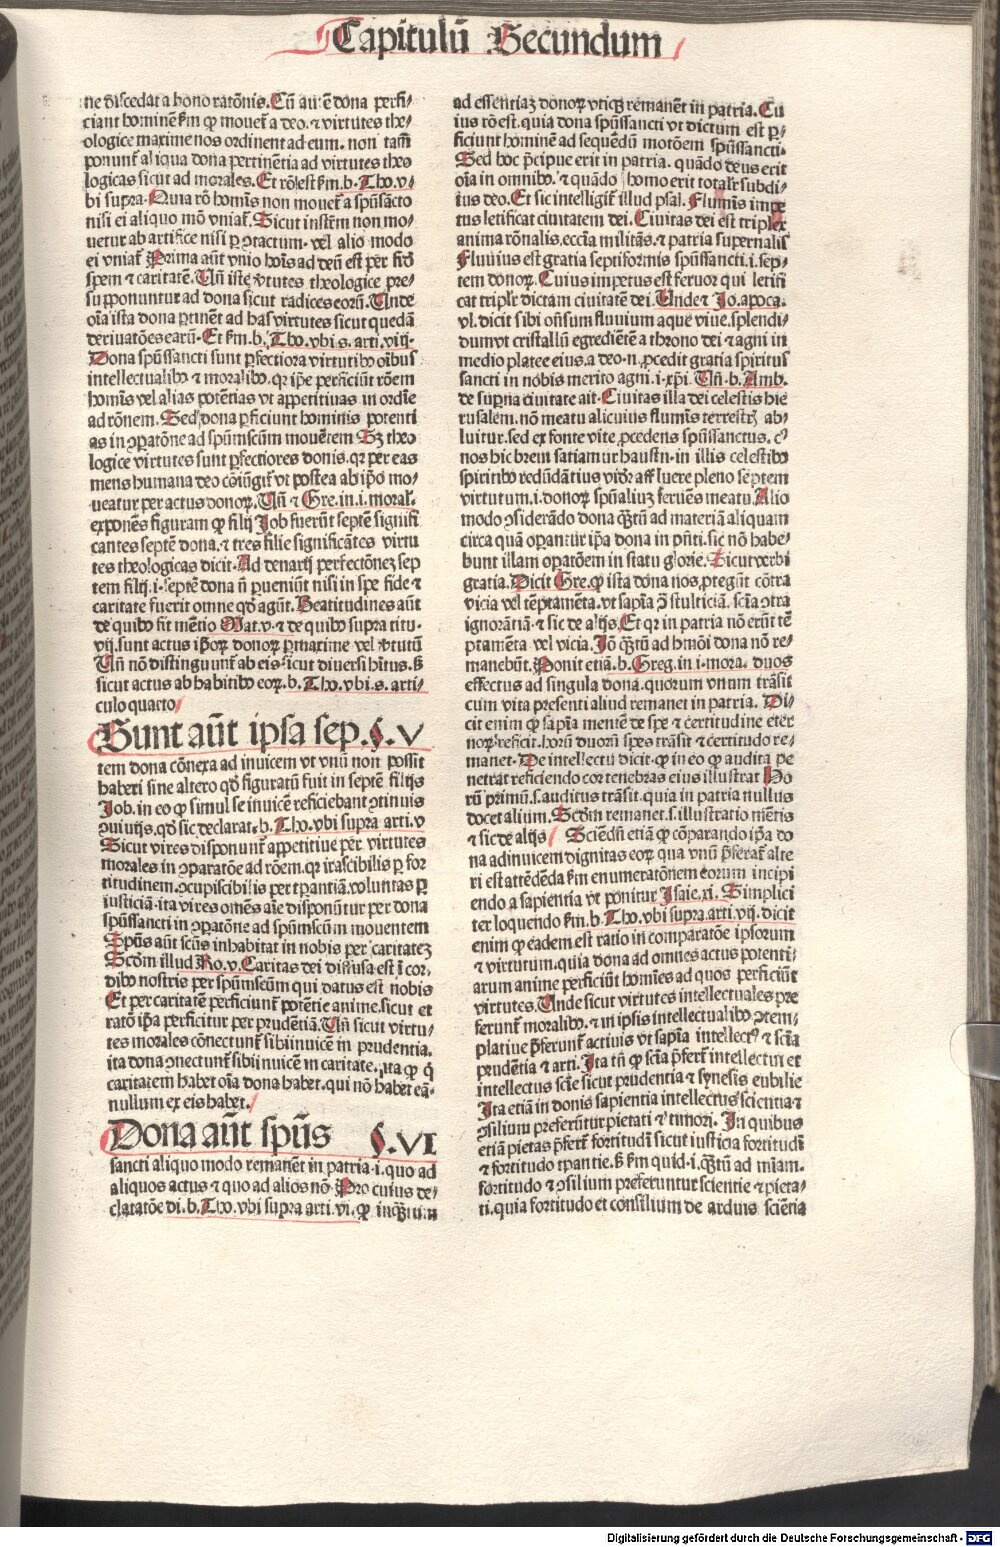 Capitulū Secundum
ne discedat a bono ratōnis. Cū aut̄ ē dona perfi-
ciant hominē km̄ ꝙ mouet̄ a deo. ⁊ virtutes the-
ologice maxime nos ordinent ad eum. non tam̄
ponunt̄ aliqua dona pertinētia ad virtutes theo
logicas sicut ad morales. Et rō est km̄.b. Tho.v-
bi supra. Quia rō homīs non mouet̄ a spūsācto
nisi ei aliquo mō vniat̄. Sicut instr̄m non mo-
uetur ab artifice nisi ꝑ ꝯtactum. vel alio modo
ei vniat̄ Prima aūt vnio hoīs ad deū est per fidē
spem ⁊ caritatē. Uñ iste v̄tutes theologice pre-
supponuntur ad dona sicut radices eorū. Unde
oīa ista dona ꝑtinēt ad has virtutes sicut quedā
deriuatōes earū. Et km̄.b. Tho.vbi.s. arti.viij.
Dona spūssancti sunt ꝑfectiora virtutibꝰ oībus
intellectualibꝰ ⁊ moralibꝰ. qꝛ ip̄e perficiūt rōem
homīs vel alias potētias vt appetitiuas in ordīe
ad rōnem. Sed dona ꝑficiunt hominis potenti
as in ꝯparatōne ad spūmscūm mouētem Sꝫ theo
logice virtutes sunt ꝑfectiores donis. qꝛ per eas
mens humana deo cōiūgit̄ vt postea ab ip̄o mo-
ueatur per actus donoꝝ. Uñ ⁊ Gre.in.i. moral.
exponēs figuram ꝙ filij Job fuerūt septē signifi
cantes septē dona. ⁊ tres filie significātes virtu
tes theologicas dicit. Ad denarij perfectōnez sep
tem filij.i. septē dona ñ ꝑueniūt nisi in spe fide ⁊
caritate fuerit omne qd̄ agūt. Beatitudines aūt
de quibꝰ fit mētio Mat.v. ⁊ de quibꝰ supra titu-
vij. sunt actus ip̄oꝝ donoꝝ ꝑmaxime vel v̄tutū
Uñ nō distinguunt̄ ab eis sicut diuersi hītus. ß
sicut actus ab habitibꝰ eoꝝ.b. Tho.vbi.s. arti-
culo quarto
Sunt aūt ipsa sep. §.V
tem dona cōnexa ad inuicem vt vnū non possit
haberi sine altero qd̄ figuratū fuit in septē filijs
Job. in eo ꝙ simul se inuicē reficiebant ꝯtinuis
ꝯuiuijs. qd̄ sic declarat.b. Tho.vbi supra arti.v
Sicut vires disponunt̄ appetitiue per virtutes
morales in ꝯparatōe ad rōem. qꝛ irascibilis ꝑ for
titudinem. ꝯcupiscibilis per tꝑantiā. voluntas ꝑ
iusticiā. ita vires omēs aīe disponūtur per dona
spūssancti in ꝯparatōne ad spūmscūm mouentem
Spūs aūt scūs inhabitat in nobis per caritatez
Scd̄m illud Ro.v. Caritas dei diffusa est ī cor-
dibꝰ nostris per spūmscūm qui datus est nobis
Et per caritatē perficiunt̄ potētie anime. sicut et
ratō ip̄a perficitur per prudētiā. Uñ sicut virtu-
tes morales cōnectunt̄ sibiinuicē in prudentia.
ita dona ꝯnectunt̄ sibiinuicē in caritate. ita ꝙ q̄
caritatem habet oīa dona habet. qui nō habet eā
nullum ex eis habet.
Dona aūt spūs §.VI
sancti aliquo modo remanēt in patria.i. quo ad
aliquos actus ⁊ quo ad alios nō. Pro cuius de-
claratōe di.b. Tho.vbi supra arti.vi. ꝙ inq̄ꝫtum
ad essentiaꝫ donoꝝ vtiqꝫ remanēt in patria. Cu
ius rō est. quia dona spūssancti vt dictum est ꝑ-
ficiunt hominē ad sequēdū motōem spūssancti.
Sed hoc p̄cipue erit in patria. quādo deus erit
oīa in omnibꝰ. ⁊ quādo homo erit totalr̄ subdi-
tus deo. Et sic intelligit̄ illud psal̄. Flumīs impe
tus letificat ciuitatem dei. Ciuitas dei est triplex
anima rōnalis. eccīa militās. ⁊ patria supernalis
Fluuius est gratia septiformis spūssancti.i. sep-
tem donoꝝ. Cuius impetus est feruor qui letifi
cat triplr̄ dictam ciuitatē dei. Unde ⁊ Jo. apoca.
vl. dicit sibi oñsum fluuium aque viue. splendi-
dum vt cristallū egrediētē a throno dei ⁊ agni in
medio platee eius. a deo.n. ꝓcedit gratia spiritus
sancti in nobis merito agni.i. xp̄i. Uñ.b. Amb.
de suꝑna ciuitate ait. Ciuitas illa dei celestis hie
rusalem. nō meatu alicuius flumīs terrestrꝭ ab-
luitur. sed ex fonte vite ꝓcedens spūssanctus. cꝰ
nos hic breui satiamur haustu. in illis celestibꝰ
spiritibꝰ redūdātius vidēr affluere pleno septem
virtutum.i. donoꝝ spūaliuꝫ feruēs meatu. Alio
modo ꝯsiderādo dona qꝫtū ad materiā aliquam
circa quā oꝑantur ip̄a dona in pñti. sic nō habe-
bunt illam oꝑatōem in statu glorie. Sicut verbi
gratia. Dicit Gre. ꝙ ista dona nos ꝓtegūt cōtra
vicia vel tēptamēta. vt sapīa ꝯ̄ stulticiā. scīa ꝯtra
ignorātiā ⁊ sic de alijs. Et qꝛ in patria nō erūt tē
ptamēta vel vicia. Jō qꝫtū ad hmōi dona nō re-
manebūt. Ponit etiā.b. Greg. in i. mora. duos
effectus ad singula dona. quorum vnum trāsit
cum vita presenti aliud remanet in patria. Di-
cit enim ꝙ sapīa mentē de spe ⁊ certitudine eter
noꝝ reficit. horū duorū spes trāsit ⁊ certitudo re-
manet. De intellectu dicit. ꝙ in eo ꝙ audita pe
netrat reficiendo cor tenebras eius illustrat Ho
rū primū.s. auditus trāsit. quia in patria nullus
docet alium. Scd̄m remanet.s. illustratio mētis
⁊ sic de alijs Sciēdū etiā ꝙ cōparando ip̄a do
na adinuicem dignitas eoꝝ qua vnū p̄ferat̄ alte
ri est attēdēda km̄ enumeratōnem eorum incipi
endo a sapientia vt ponitur Jsaie.xi. Simplici
ter loquendo km̄.b. Tho.vbi supra.arti.vij. dicit
enim ꝙ eadem est ratio in comparatōe ipsorum
⁊ virtutum. quia dona ad omnes actus potenti-
arum anime perficiūt homīes ad quos perficiūt
virtutes. Unde sicut virtutes intellectuales pre
ferunt̄ moralibꝰ. ⁊ in ipsis intellectualibꝰ ꝯtem-
platiue p̄ferunt̄ actiuis vt sapīa intellectꝰ ⁊ scīa
prudētia ⁊ arti. Jta tñ ꝙ scīa p̄fert̄ intellectui et
intellectus scīe sicut prudentia ⁊ synesis eubilie
Jta etiā in donis sapientia intellectus scientia ⁊
ꝯsilium preferūtur pietati ⁊ timori. Jn quibus
etiā pietas p̄fert̄ fortitudī sicut iusticia fortitudī
⁊ fortitudo tꝑantie. ß km̄ quid.i. qꝫtū ad mīam.
fortitudo ⁊ ꝯsilium preferuntur scientie ⁊ pieta-
ti. quia fortitudo et consilium de arduis sciētia
Digitalisierung gefördert durch die Deutsche Forschungsgemeinschaft - DFG